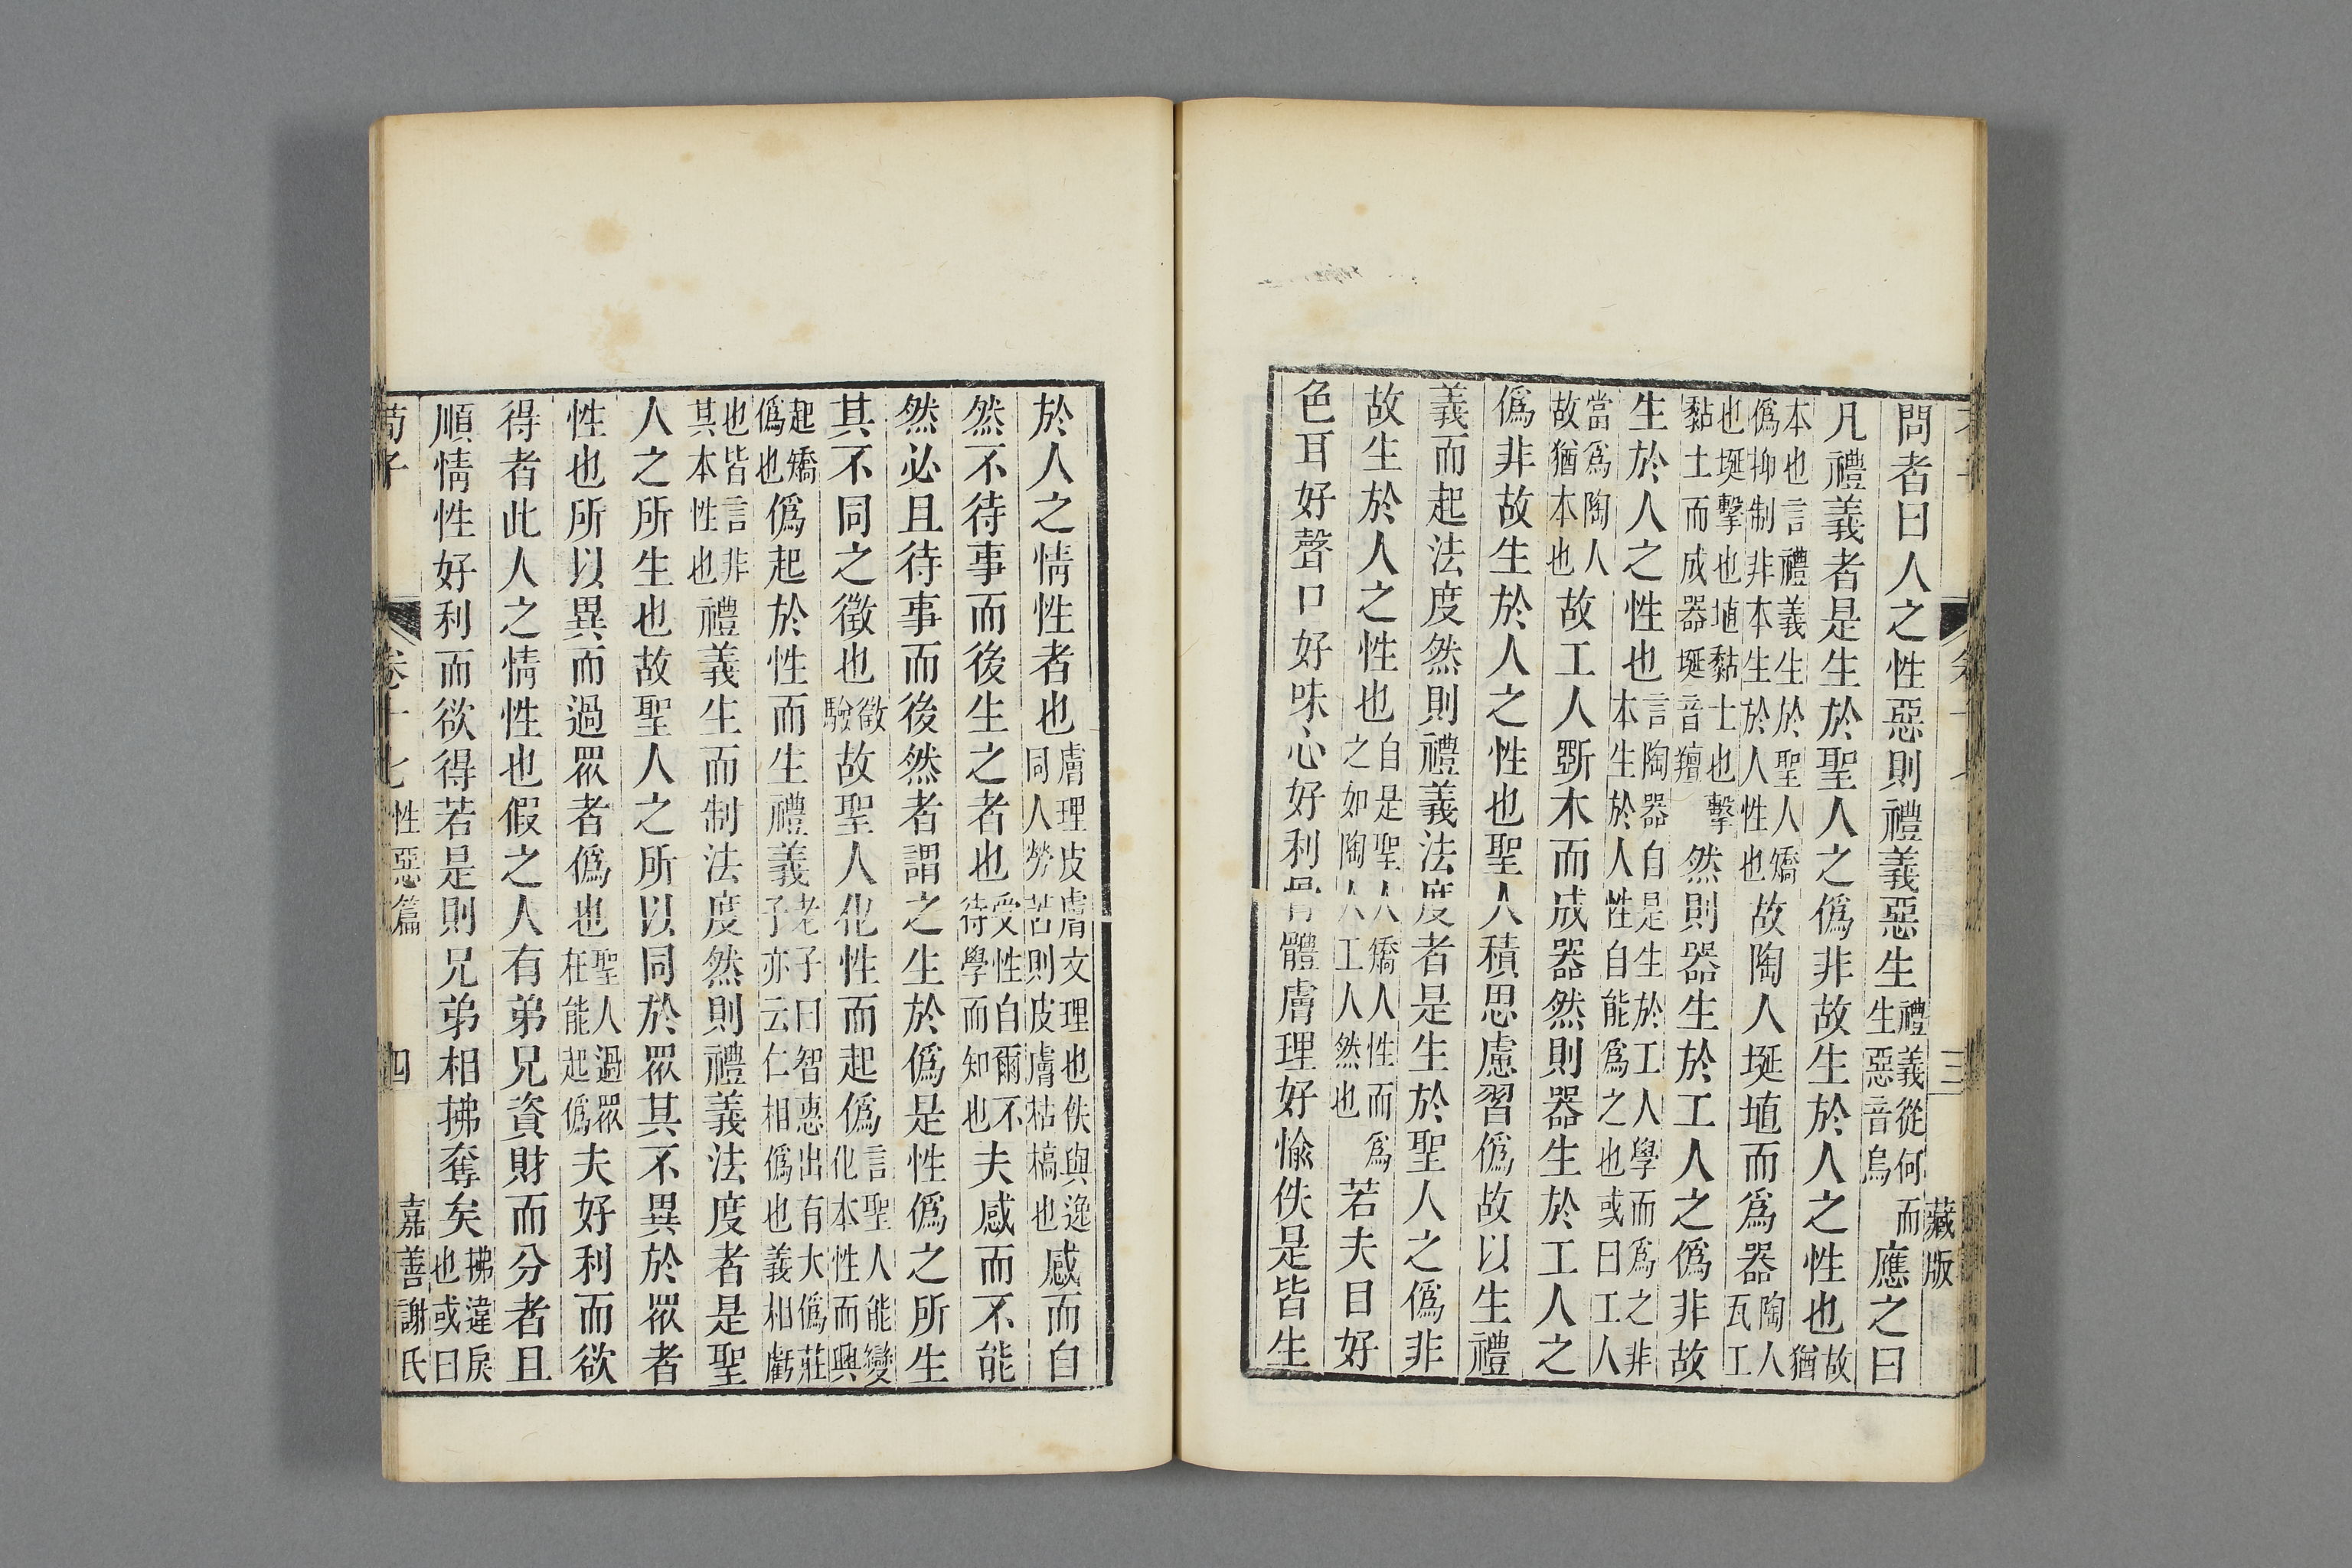 藏版
問者曰人之性惡則禮義惡生禮義從何而生惡音烏應之曰
凡禮義者是生於聖人之僞非故生於人之性也故猶
本也言禮義生於聖人矯僞抑制非本生於人性也故陶人埏埴而爲器陶人瓦工
也埏擊也埴黏土也擊黏土而成器埏音羶然則器生於工人之僞非故
生於人之性也言陶器自是生於工人學而爲之非本生於人性自能爲之也或曰工人
當爲陶人故猶本也故工人斲木而成器然則器生於工人之
僞非故生於人之性也聖人積思慮習僞故以生禮
義而起法度然則禮義法度者是生於聖人之僞非
故生於人之性也自是聖人矯人性而爲之如陶人工人然也若夫目好
色耳好聲口好味心好利骨體膚理好愉佚是皆生
於人之情性者也膚理皮膚文理也佚與逸同人勞苦則皮膚枯槁也感而自
然不待事而後生之者也受性自爾不待學而知也夫感而不能
然必且待事而後然者謂之生於僞是性僞之所生
其不同之徵也徵驗故聖人化性而起僞言聖人能變化本性而興
起矯僞也僞起於性而生禮義老子曰智惠出有大僞莊子亦云仁相僞也義相虧
也皆言非其本性也禮義生而制法度然則禮義法度者是聖
人之所生也故聖人之所以同於眾其不異於眾者
性也所以異而過眾者僞也聖人過眾在能起僞夫好利而欲
得者此人之情性也假之人有弟兄資財而分者且
順情性好利而欲得若是則兄弟相拂奪矣拂違戾也或曰
荀子 卷十七 性惡篇 四 嘉善謝氏